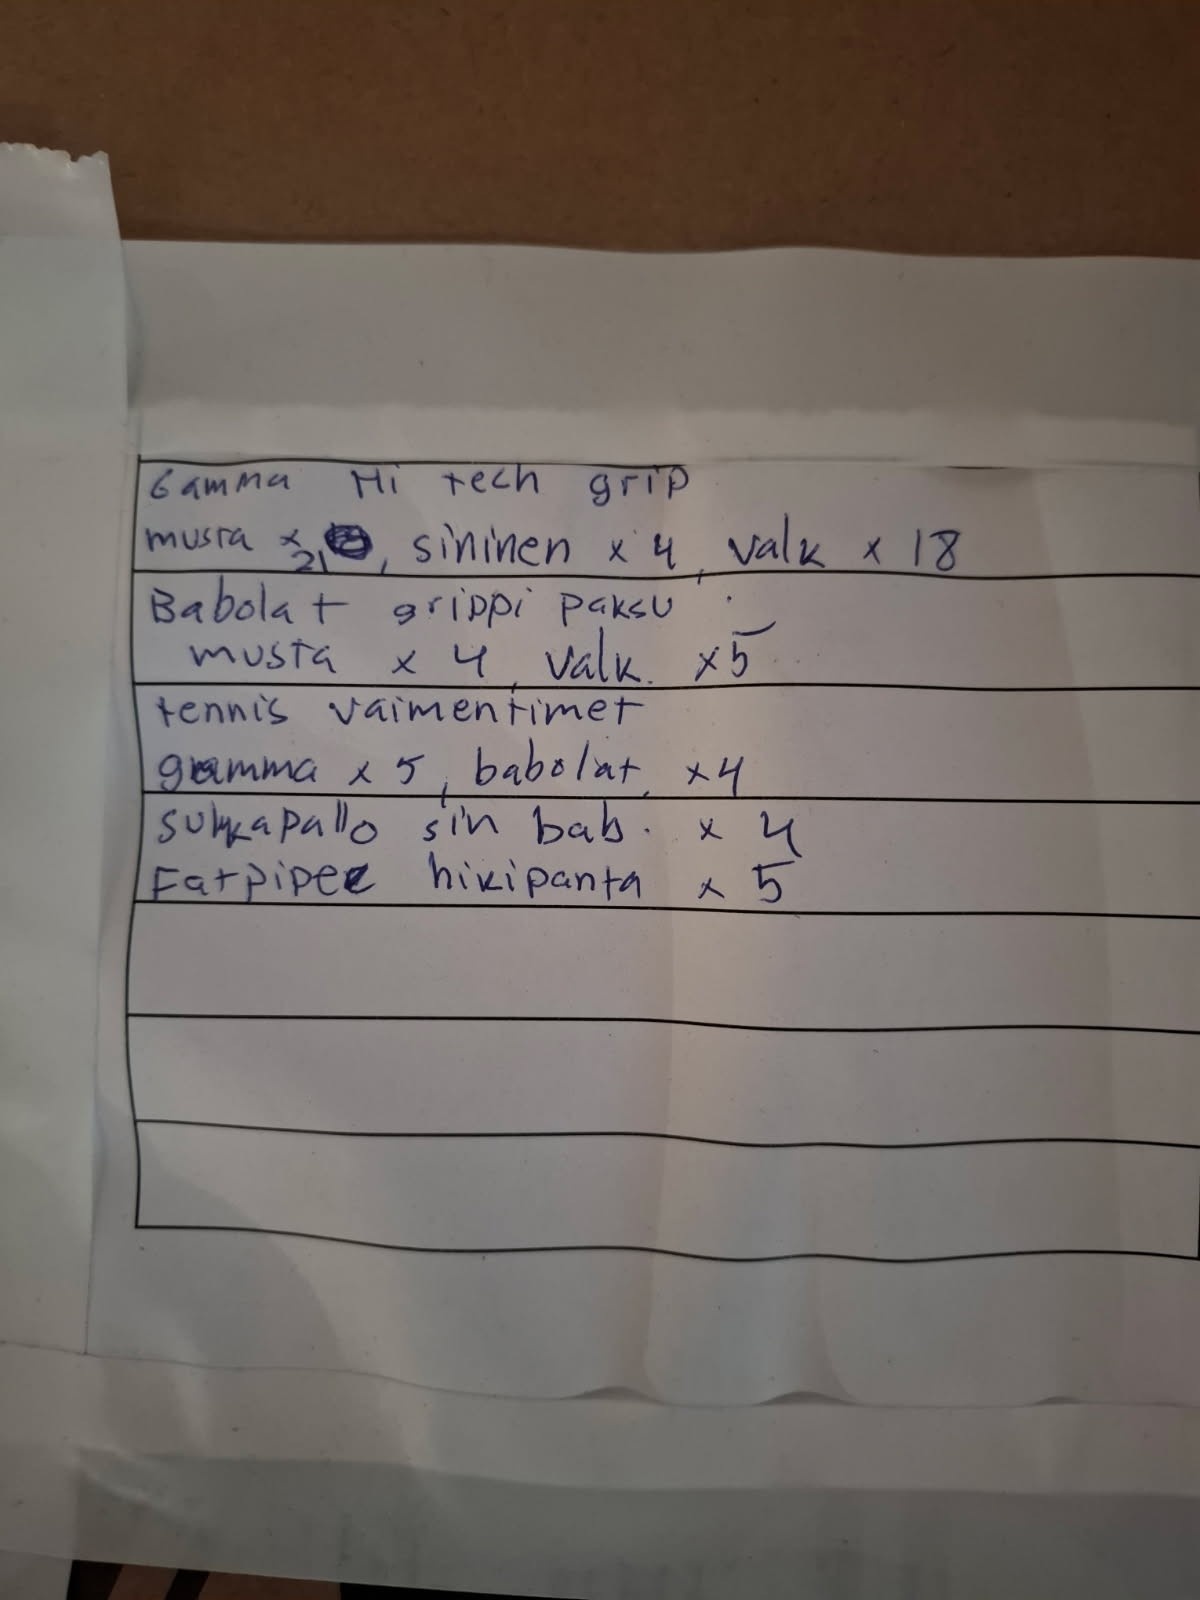 Gamma Hi tech grip
musta x 21, sininen x 4, valk x 18
Babolat grippi paksu
musta x 4, valk. x5
tennis vaimentimet
gamma x 5, babolat x4
sulkapallo sin bab. x 4
Fatpipe hikipanta x 5